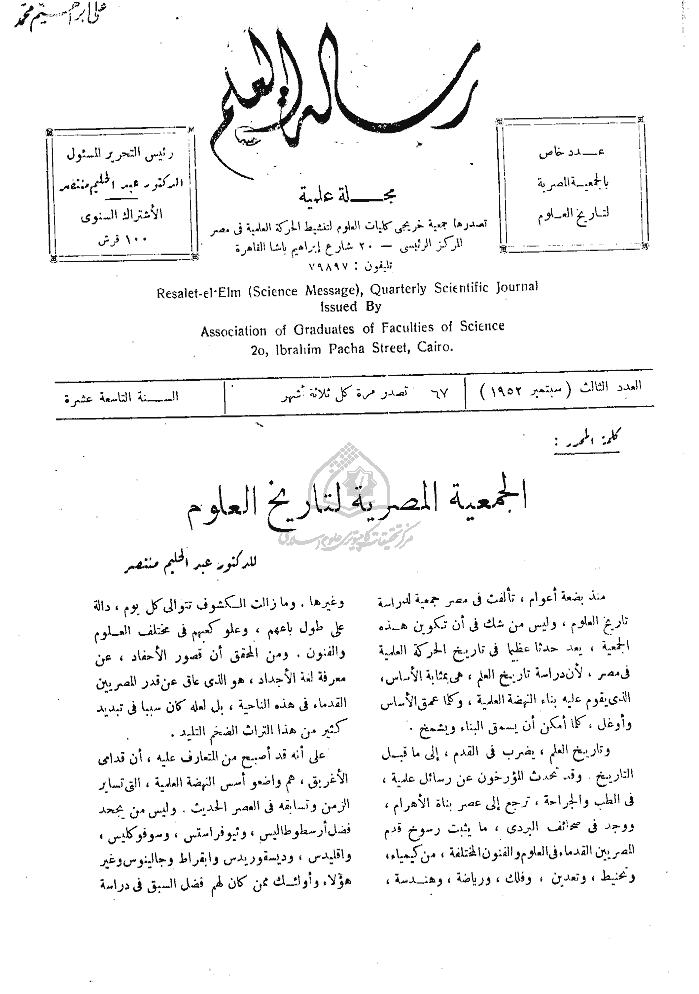 على ابراهيم محمد
رسالة العلم
رئيس التحرير المسئول
الدكتور عبد الحليم منتصر
الاشتراك السنوى
١٠٠ قرش
عدد خاص
بالجمعية المصرية
لتاريخ العلوم
مجلة علمية
تصدرها جمعية خريجى كليات العلوم لتنشيط الحركة العلمية فى مصر
المركز الرئيسى — ٢٠ شارع إبراهيم باشا القاهرة
تليفون : ٧٩٨٩٧
Resalet-el-Elm (Science Message), Quarterly Scientific Journal
Issued By
Association of Graduates of Faculties of Science
2o, Ibrahim Pacha Street, Cairo.
العدد الثالث ( سبتمبر ١٩٥٢ ) ٦٧ تصدر مرة كل ثلاثة أشهر السنة التاسعة عشرة
كلمة المحرر :
الجمعية المصرية لتاريخ العلوم
مرکز تحقیقات کامپیوتری علوم اسلامی
للدكتور عبد الحليم منتصر
منذ بضعة أعوام ، تألفت فى مصر جمعية لدراسة
تاريخ العلوم ، وليس من شك فى أن تكوين هذه
الجمعية ، يعد حدثا عظيما فى تاريخ الحركة العلمية
فى مصر ، لأن دراسة تاريخ العلم ، هى بمثابة الأساس،
الذى يقوم عليه بناء النهضة العلمية ، وكلما عمق الأساس
وأوغل ، كلما أمكن أن يسمق البناء ويشمخ .
وتاريخ العلم ، يضرب فى القدم ، إلى ما قبل
التاريخ . وقد تحدث المؤرخون عن رسائل علمية ،
فى الطب والجراحة ، ترجع إلى عصر بناة الأهرام ،
ووجد فى صحائف البردى ، ما يثبت رسوخ قدم
المصريين القدماء فى العلوم والفنون المختلفة ، من كيمياء،
وتحنيط ، وتعدين ، وفلك ، ورياضة ، وهندسة ،
وغيرها . وما زالت الكشوف تتوالى كل يوم ، دالة
على طول باعهم ، وعلو كعبهم فى مختلف العلوم
والفنون . ومن المحقق أن قصور الأحفاد ، عن
معرفة لغة الأجداد ، هو الذى عاق عن قدر المصريين
القدماء فى هذه الناحية ، بل لعله كان سببا فى تبديد
كثير من هذا التراث الضخم التليد .
على أنه قد أصبح من المتعارف عليه ، أن قدامى
الأغريق ، هم واضعو أسس النهضة العلمية ، التى تساير
الزمن وتسابقه فى العصر الحديث . وليس من يجحد
فضل أرسطوطاليس ، وثيوفراستس ، وسوفوكليس ،
واقليدس ، وديسقوريدس وابقراط وجالينوس وغير
هؤلاء وأولئك ممن كان لهم فضل السبق فى دراسة